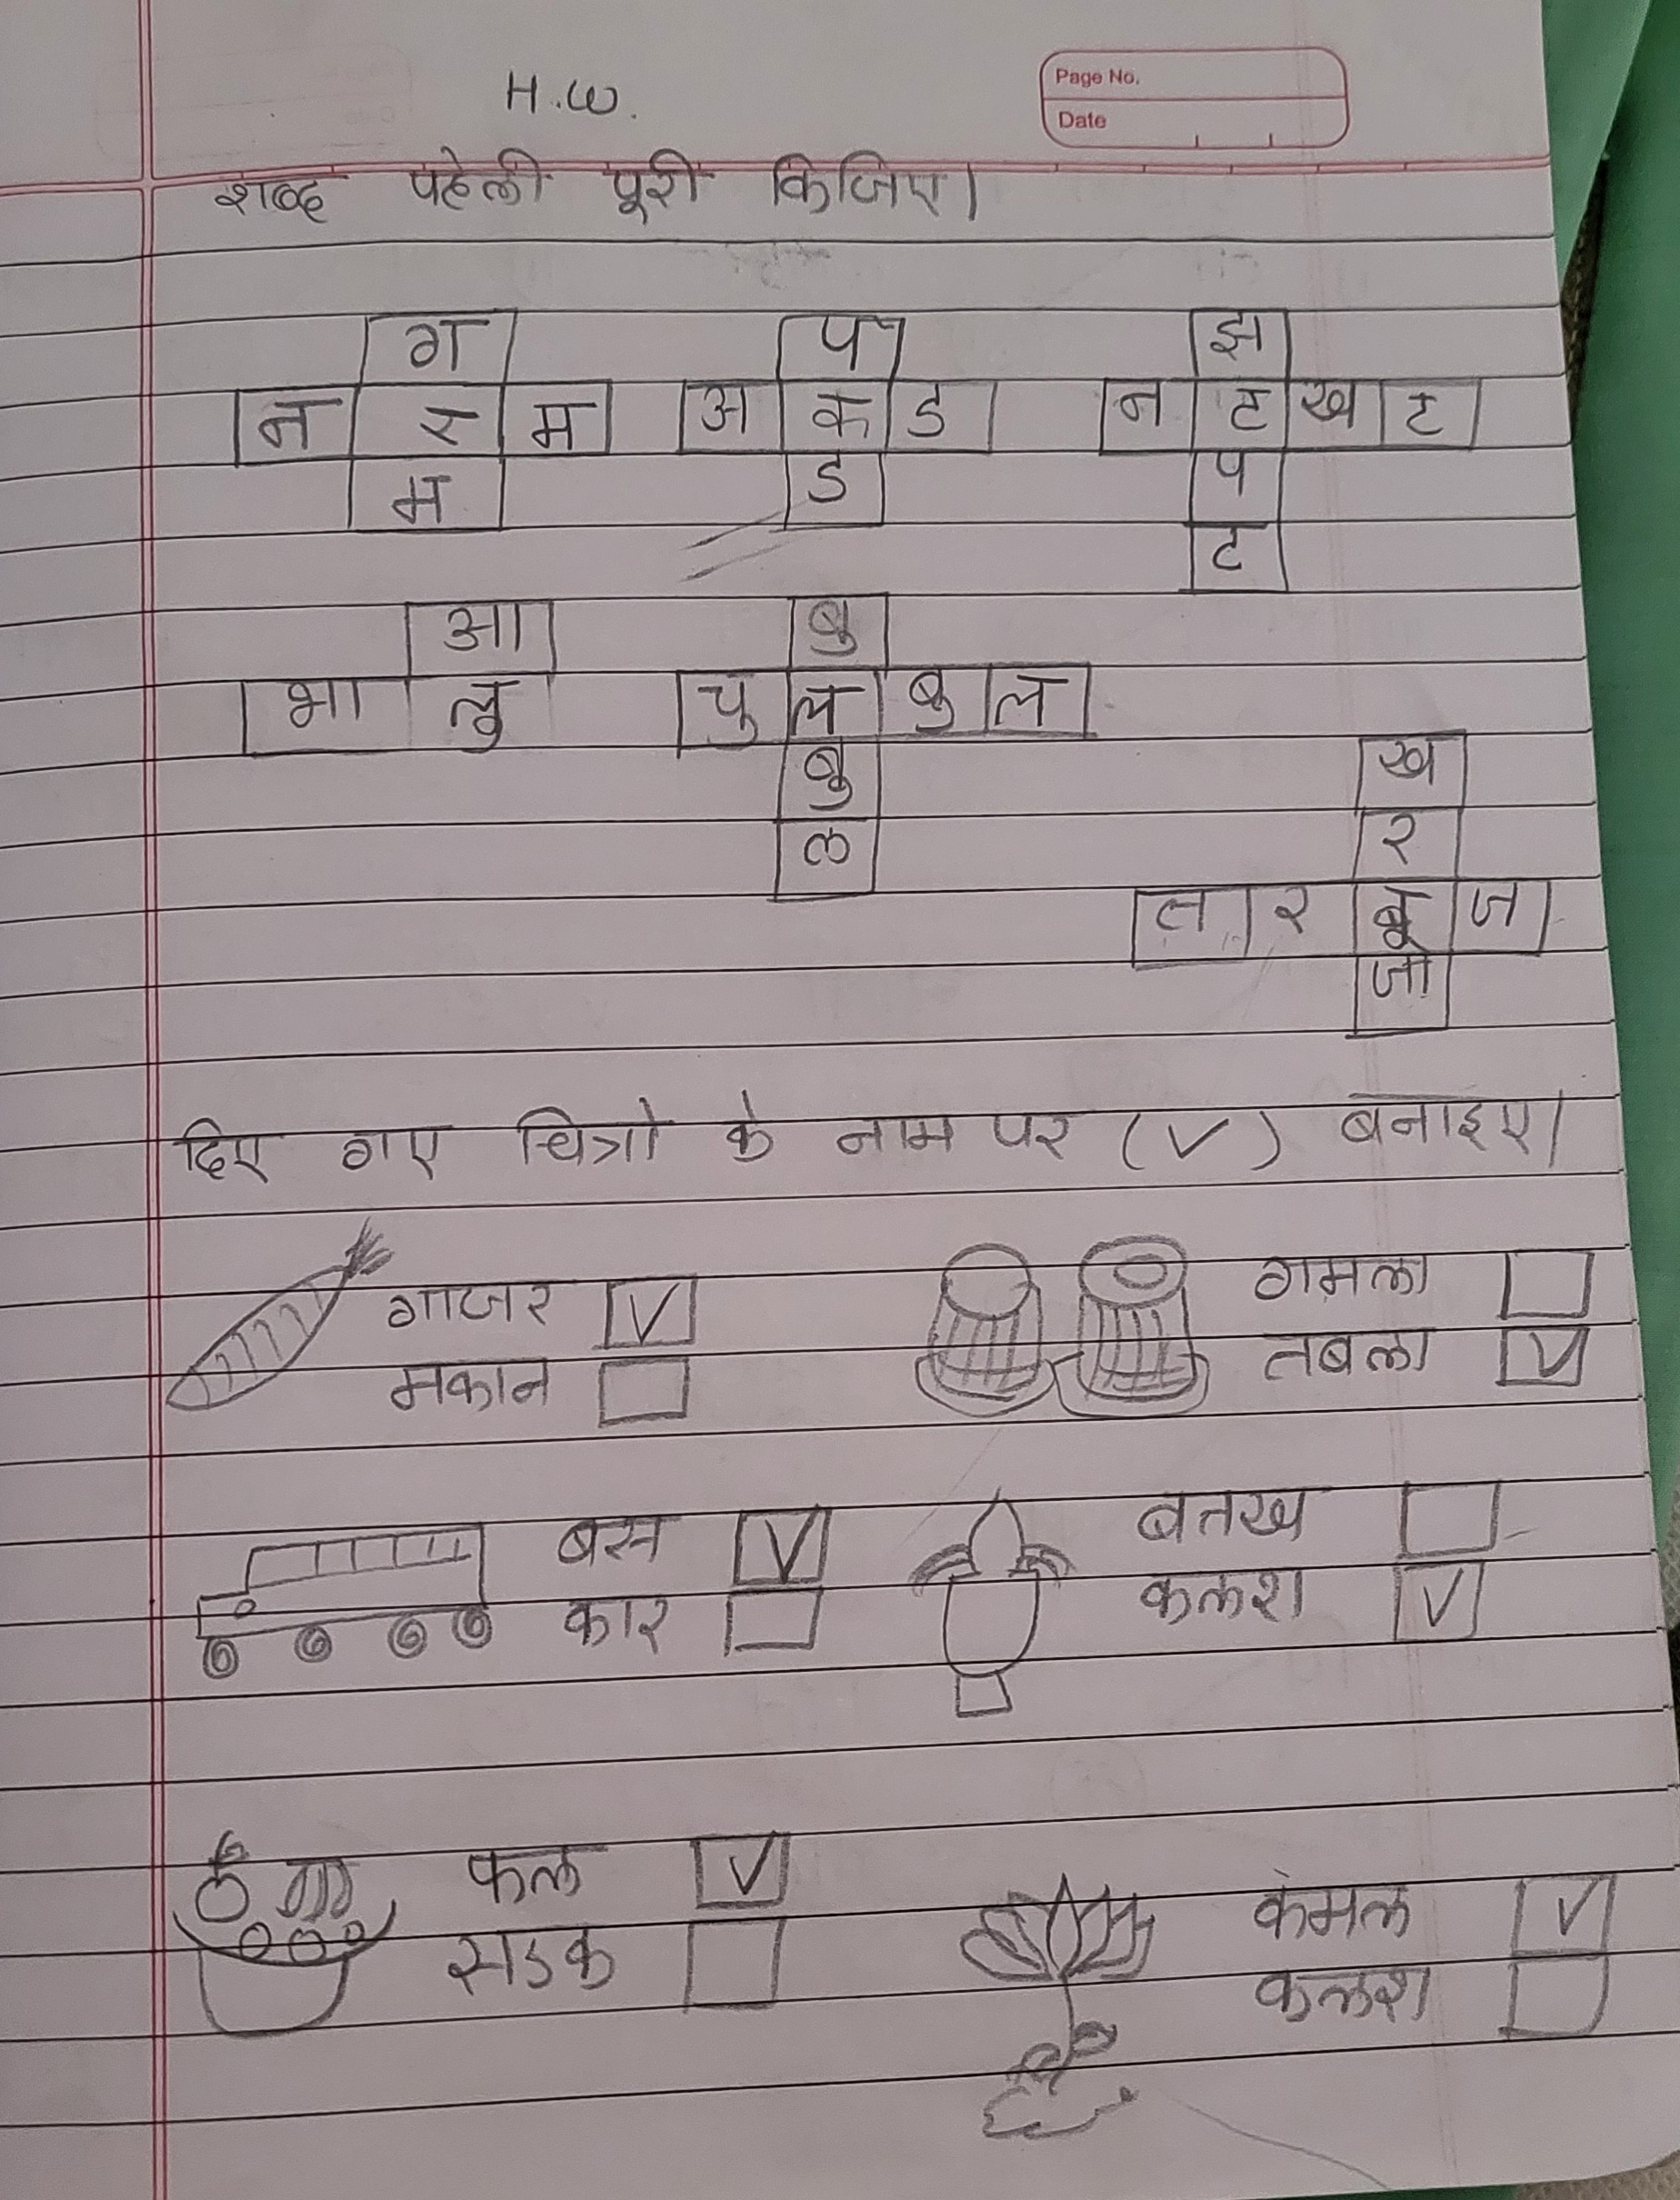 H.W.
Page No.
Date
शब्द पहेली पूरी किजिए।
ग प झ
न र म अ क ड न ट ख ट
म ड प
ट
आ बु
भा लु चु ल बु ल
बु ख
ल र
त र बू ज
जा
दिए गए चित्रो के नाम पर (✓) बनाइए।
गाजर ✓ गमला
मकान तबला ✓
बस ✓ बतख
कार कलश ✓
फल ✓ कमल ✓
सडक कलश